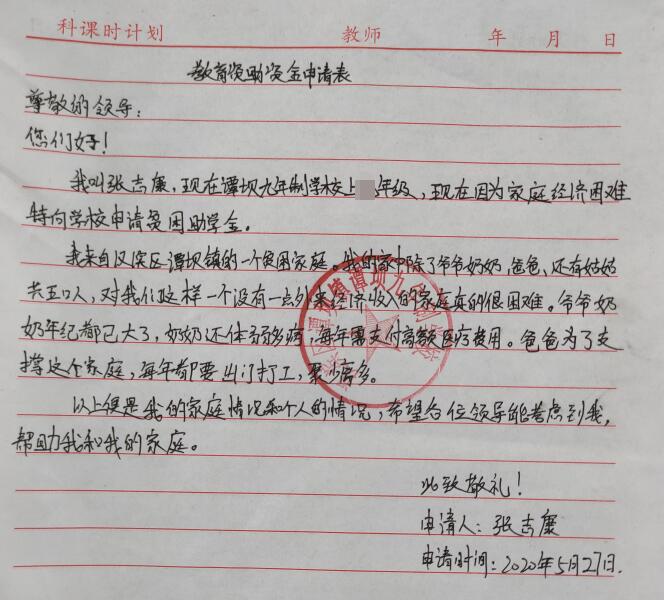 科课时计划 教师 年 月 日
教育资助资金申请表
尊敬的领导:
您们好!
我叫张志康,现在谭坝九年制学校上年级,现在因为家庭经济困难
特向学校申请贫困助学金。
我来自汉滨区谭坝镇的一个贫困家庭。我的家中除了爷爷奶奶、爸爸、还有姑姑
共五口人,对我们这样一个没有一点外来经济收入的家庭真的很困难。爷爷奶
奶年纪都已大了,奶奶还体弱多病,每年需支付高额医疗费用。爸爸为了支
撑这个家庭,每年都要出门打工,聚少离多。
以上便是我的家庭情况和个人的情况,希望各位领导能考虑到我,
帮助我和我的家庭。
此致敬礼!
申请人:张志康
申请时间:2020年5月27日.